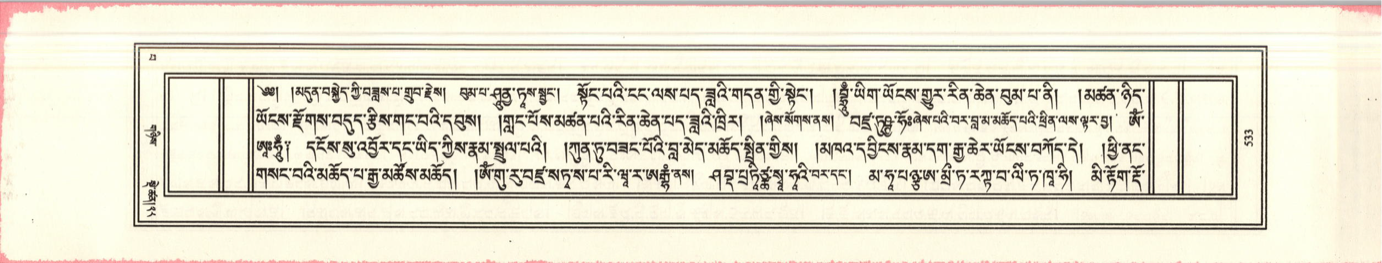 ༄༅། །མདུན་བསྐྱེད་ཀྱི་བཟླས་པ་གྲུབ་རྗེས། བུམ་པ་ཤཱུནྱ་ཏཱས་སྦྱང་། སྟོང་པའི་ངང་ལས་པད་ཟླའི་གདན་གྱི་སྟེང་། །བྷྲཱུྃ་ཡིག་ཡོངས་གྱུར་རིན་ཆེན་བུམ་པ་ནི། །མཚན་ཉིད་
ཡོངས་རྫོགས་བདུད་རྩིས་གང་བའི་དབུས། །གླང་པོས་མཚན་པའི་རིན་ཆེན་པད་ཟླའི་ཁྲིར། །ཞེས་སོགས་ནས། བཛྲ་ཏུཥྱ་ཧོཿཞེས་པའི་བར་བླ་མ་མཆོད་པའི་ཕྲིན་ལས་ལྟར་བྱ། ཨོཾ་
ཨཱཿཧཱུྃ༔ དངོས་སུ་འབྱོར་དང་ཡིད་ཀྱིས་རྣམ་སྤྲུལ་པའི། །ཀུན་ཏུ་བཟང་པོའི་བླ་མེད་མཆོད་སྤྲིན་གྱིས། །མཁའ་དབྱིངས་རྣམ་དག་རྒྱ་ཆེར་ཡོངས་བཀོད་དེ། །ཕྱི་ནང་
གསང་བའི་མཆོད་པ་རྒྱ་མཚོས་མཆོད། །ཨོཾ་གུ་རུ་བཛྲ་སཏྭ་ས་པ་རི་ཝཱ་ར་ཨརྒྷཾ་ནས། ཤབྡ་པྲ་ཏཱིཙྪ་སྭཱ་ཧཱའི་བར་དང་། མ་ཧཱ་པཉྩ་ཨ་མྲྀ་ཏ་རཀྟ་བ་ལིཾ་ཏ་ཁཱ་ཧི། མི་རྟོག་རྡོ་
གཉིས་
533